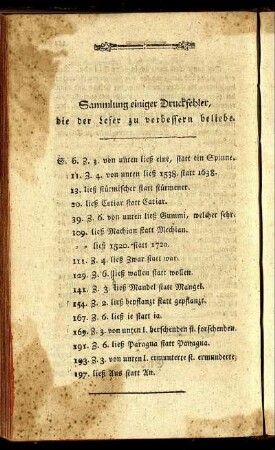 Sammlung einiger Druckfehler,
die der Leser zu verbessern beliebe.
S. 6. Z. 3. von unten ließ eine, statt ein Spinne.
11. Z. 4. von unten ließ 1538. statt 1638.
13. ließ stürmischer statt stürmener.
20. ließ Catiar statt Satiar.
39. Z. 6. von unten ließ Gummi, welcher sehr.
109. ließ Machian statt Mechian.
" " ließ 1520. statt 1720.
111. Z. 4. ließ Zwar statt war.
129. Z. 6. ließ wallen statt wollen.
141. Z. 3. ließ Mandel statt Mangel.
154. Z. 2. ließ bepflanzt statt gepflanzt.
167. Z. 6. ließ ie statt ia.
169. Z. 3. von unten l. herschenden st. forschenden.
191. Z. 6. ließ Paragna statt Paragua.
193. Z. 3. von unten l. ermunterte st. ermunderte;
197. ließ Aus statt An.